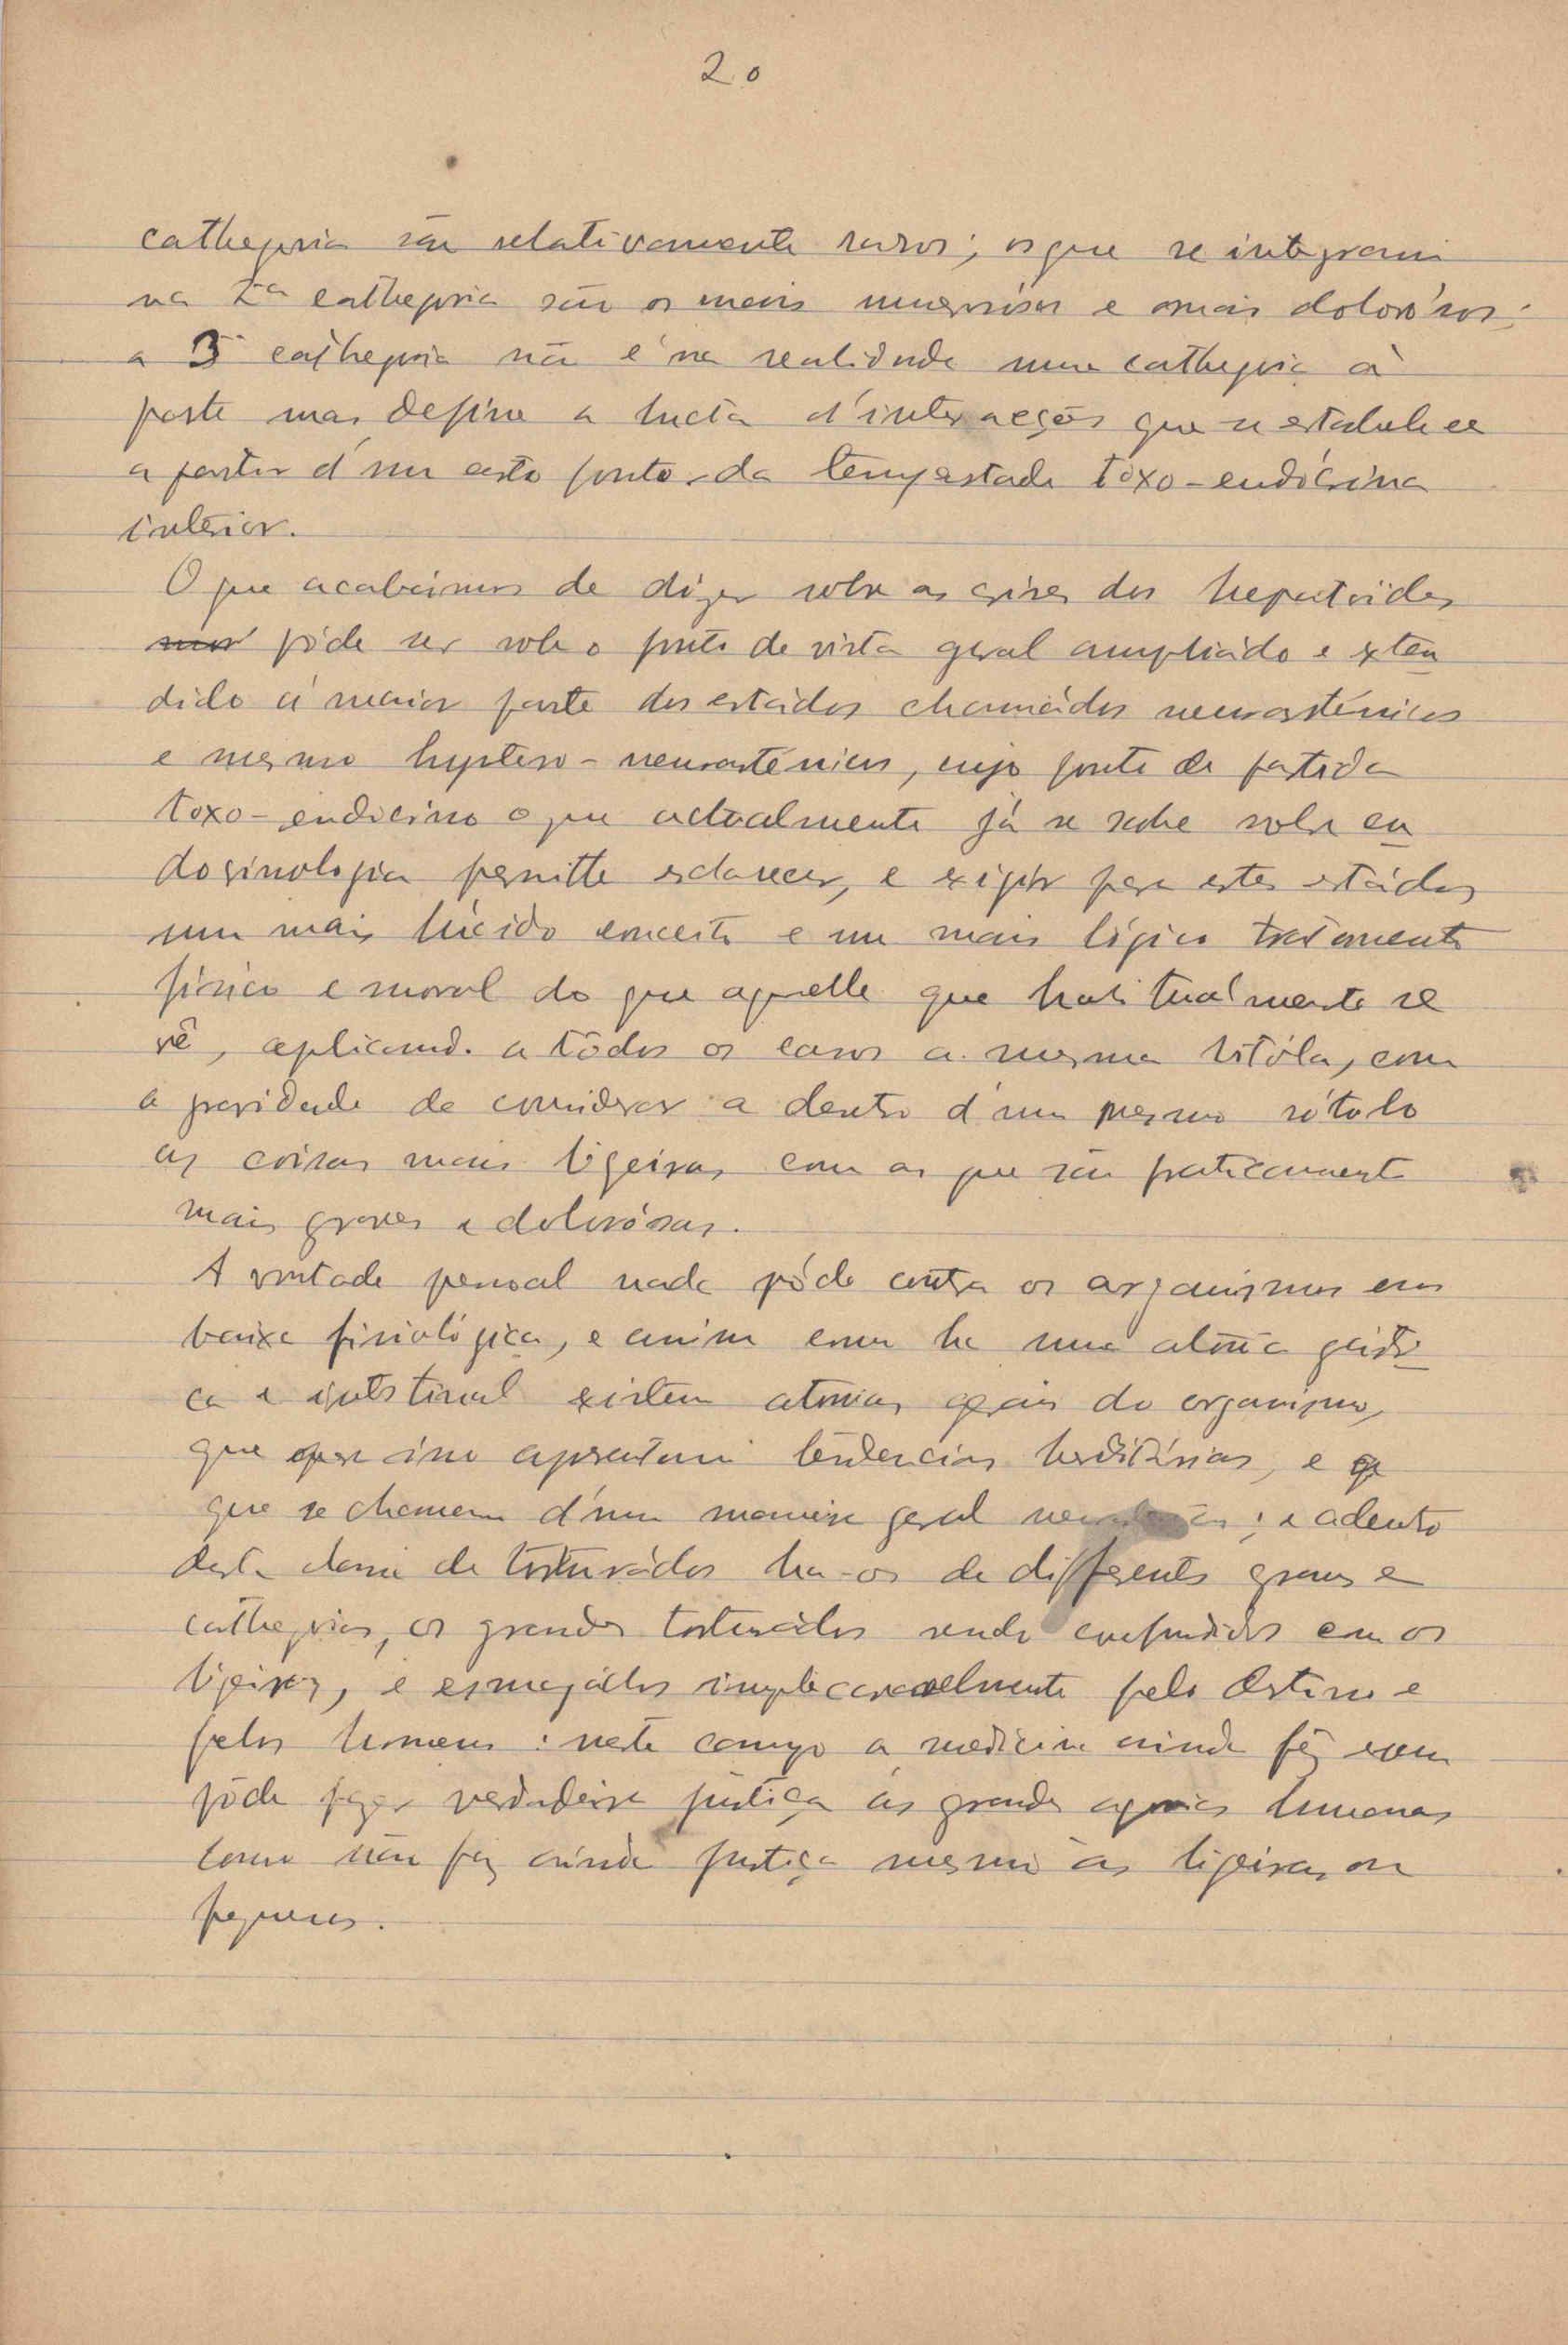 20
cathegoria são relativamente raros; os que se integram
na 2ª cathegoria são os mais numerosos e o mais dolorósos;
a 3ª cathegoria não é na realidade uma cathegoria à
parte mas define a lucta d'interacções que se estabelece
a partir d'um certo ponto da tempestade toxo-endócrina
interior.
O que acabámos de dizer sobre as crises dos hepatóides
póde ser sob o ponto de vista geral ampliádo e exten
dido á maior parte dos estádos chamádos neurasténicos
e mesmo hystero-neurasténicos, cujo ponto de partida
toxo-endocrino o que actualmente já se sabe sobre en
docrinologia permitte esclarecer, e exigir para estes estádos
um mais lúcido conceito e um mais lógico tratamento
fisico e moral do que aquelle que habitualmente se
vê, aplicando a tôdos os casos a mesma bitóla, com
a gravidade de considerar a dentro d'um mesmo rótulo
as coisas mais ligeiras com as que são praticamente
mais graves e dolorósas.
A vontade pessoal nada póde contra os organismos em
baixa fisiológica, e assim como ha uma atonia gástri
ca e intestinal existem atonias gerais do organismo,
que por isso apresentam tendencias herditárias, e
que se chamam d'uma maneira geral ; e adentro
desta classe de torturádos ha-os de differentes graus e
cathegorias, os grandes torturádos sendo confundidos com os
ligeiros, e esmagádos implacavelmente pelo Destino e
pelos homens: neste campo a medicina ainda fez nem
póde fazer verdadeira justiça ás grandes agonias humanas
como não fez ainda justiça mesmo às ligeiras ou
pequenas.